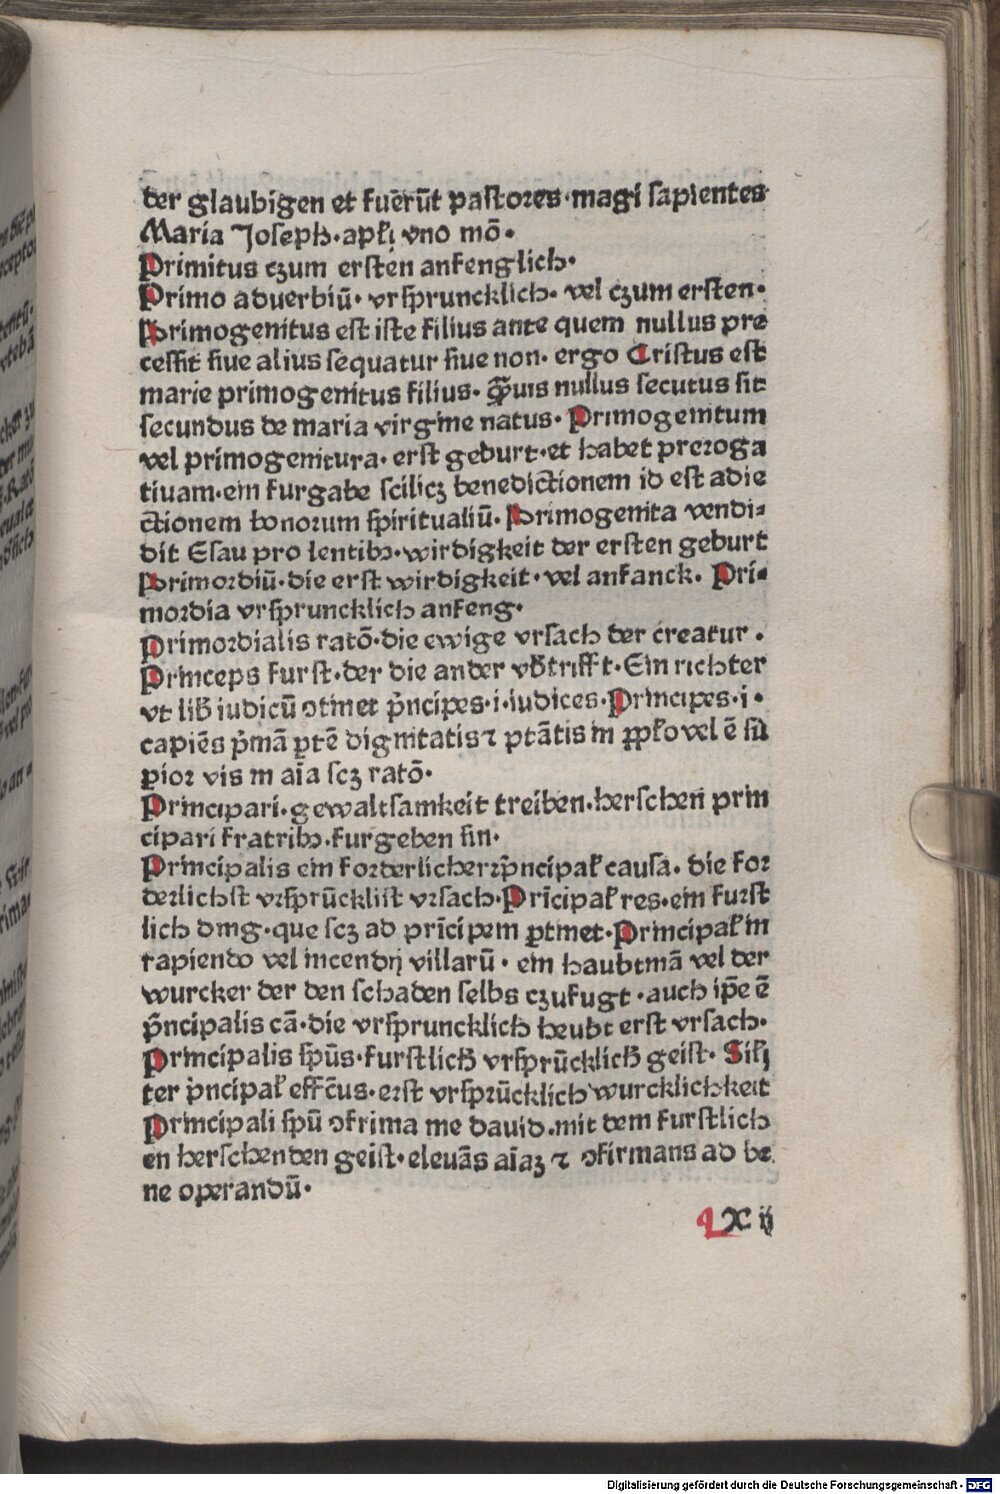 der glaubigen et fuerūt pastores·magi sapientes
Maria Joseph·apłi vno mō·
Primitus czum ersten anfenglich·
Primo aduerbiū· vrspruncklich· vel czum ersten·
Primogenitus est iste filius ante quem nullus pre
cessit siue alius sequatur siue non· ergo Cristus est
marie primogenitus filius· Q̄uis nullus secutus sit
secundus de maria virgine natus· Primogenitum
vel primogenitura· erst geburt·et habet preroga
tiuam·ein furgabe scilicꝫ benedictionem id est adie
ctionem bonorum spiritualiū· Primogenita vendi-
dit Esau pro lentibꝫ·wirdigkeit der ersten geburt
Primordiū·die erst wirdigkeit·vel anfanck· Pri-
mordia vrspruncklich anfeng·
Primordialis ratō·die ewige vrsach der creatur·
Princeps furst·der die ander vb̄trifft·Ein richter
vt lib̄ iudicū ↄtinet p̄ncipes·i·iudices·Principes·i·
capiēs p̄mā ꝑtē dignitatis ⁊ ptātis in ꝓpło vel ē su
ꝑior vis in aīa scꝫ ratō·
Principari·gewaltsamkeit treiben·herschen prin
cipari fratribꝫ·furgeben sin·
Principalis ein forderlicher p̄ncipał causa· die for
derlichst vrsprūcklist vrsach·Prīcipał res·ein furst
lich ding·que scꝫ ad prīcipem ꝑtinet·Principał in
rapiendo vel incendij villarū· ein haubtmā vel der
wurcker der den schaden selbs czufugt·auch ip̄e ē
p̄ncipalis cā·die vrspruncklich heubt erst vrsach·
Principalis sp̄us·furstlich vrsprūcklich geist· Siłi
ter p̄ncipał effc̄us·erst vrsprūcklich wurcklichkeit
Principali sp̄u ↄfirma me dauid·mit dem furstlich
en herschenden geist·eleuās aīaꝫ ⁊ ↄfirmans ad be
ne operandū·
X ij